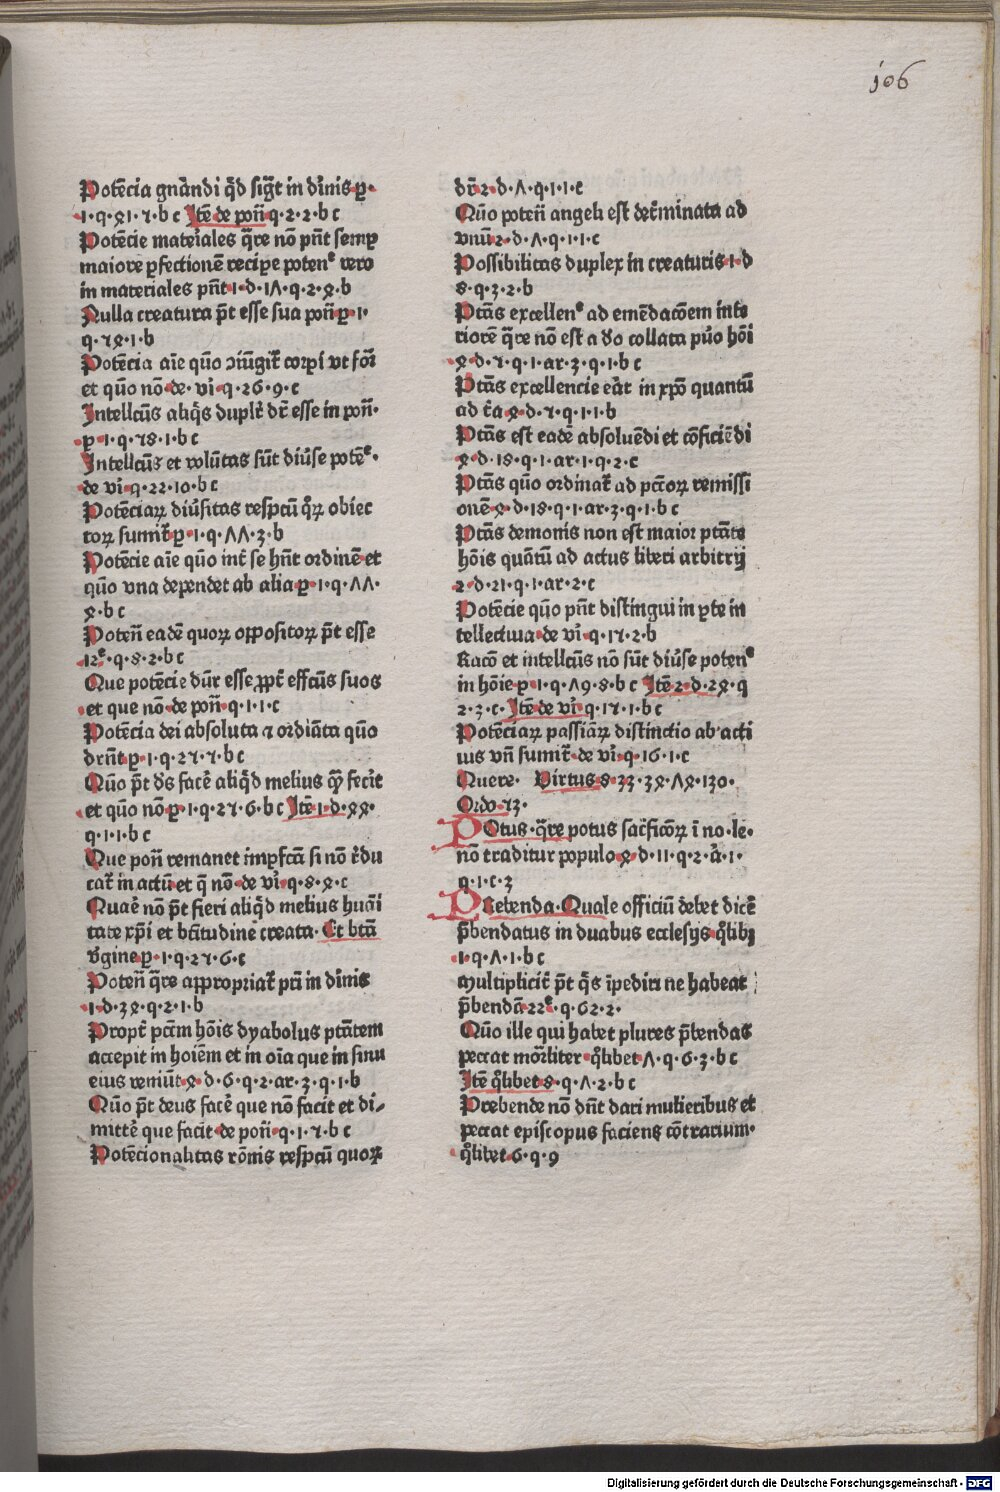 106
Potēcia gnãndi q̄d sigt̄ in diuīs ꝑ·
1·q·ꝝ1·7·b c Itē de poñ q·2·2·b c
Potēcie materiales q̄re nō pn̄t semꝑ
maiorē ꝑfectionē recipe potenᵉ vero
in materiales pn̄t 1·d·1Λ·q·2·ꝝ·b
Nulla creatura p̄t esse sua poñ ꝑ·1·
q·7ꝝ·1·b
Potēcia aīe quō ↄiūgit᷑ corpī vt for̄
et quō nō de·vī·q·26·9·c
Intellcūs aliq̄s duplr̄ dr̄ esse in poñ·
ꝑ·1·q·78·1·b c
Intellcūs et volūtas sūt diūse potēᵉ·
de vī·q·22·10·b c
Potēciaꝝ diūsitas respcū q̄ꝝ obiec
toꝝ sumit᷑ ꝑ·1·q·ΛΛ·3·b
Potēcie aīe quō int̄ se hn̄t ordinē et
quō vna dependet ab alia ꝑ·1·q·ΛΛ·
ꝝ·b c
Poteñ eadē quoꝝ oppositoꝝ p̄t esse
12ᵉ·q·8·2·b c
Que potēcie dn̄r esse ꝓpt̄ effcūs suos
et que nō de poñ q·1·1·c
Potēcia dei absoluta ⁊ ordiāta quō
drn̄t ꝑ·1·q·27·7·b c
Quō p̄t dꝰs facē aliq̄d melius qꝫ fecit
et quō nō ꝑ·1·q·27·6·b c Itē 1·d·ꝝꝝ·
q·1·1·b c
Que poñ remanet imꝑfcā si nō r̄du
cat᷑ in actū et q̄ nō de vī·q·8·ꝝ·c
Quaē nō p̄t fieri aliq̄d melius huāi
tate xp̄i et btītudine creata· Et btā
v̄gine ꝑ·1·q·27·6·c
Poteñ q̄re appropriat᷑ pr̄i in diuīs
1·d·3ꝝ·q·2·1·b
Propt̄ pctm̄ hōis dyabolus ptātem
accepit in hoīem et in oīa que in sinu
eius veniūt ꝝ·d·6·q·2·ar·3·q·1·b
Quō p̄t deus facē que nō facit et di⸗
mittē que facit de poñ·q·1·7·b c
Potēcionalitas rōnis respcū quoꝝ
dr̄ 2·d·Λ·q·1·1·c
Quō poteñ angeli est det̄minata ad
vnū 2·d·Λ·q·1·1·c
Possibilitas duplex in creaturis 1·d
8·q·3·2·b
Ptās excellenᵉ ad emēdacōem inte
riorē q̄re nō est a do collata puo hōi
ꝝ·d·7·q·1·ar·3·q·1·b c
Ptās excellencie eāt in xpō quantū
ad tīa ꝝ·d·7·q·1·1·b
Ptās est eadē absoluēdi et cōficiēdi
ꝝ·d·18·q·1·ar·1·q·2·c
Ptās quō ordinat᷑ ad pctōꝝ remissi
onē ꝝ·d·18·q·1·ar·3·q·1·b c
Ptās demonis non est maior ptāte
hōis quātū ad actus liberi arbitrij
2·d·21·q·1·ar·2·c
Potēcie quō pn̄t distingui in ꝑte in
tellectiua de vī·q·17·2·b
Racō et intellcūs nō sūt diūse potenᵉ
in hōie ꝑ·1·q·Λ9·8·b c Itē 2·d·2ꝝ·q
2·3·c· Itē de vī·q·17·1·b c
Potēciaꝝ passiāꝝ distinctio ab acti
uis vn̄ sumit᷑·de vī·q·16·1·c
Quere· Virtus 8·33·3ꝝ·Λꝝ·130·
Ordo 73·
POtus·q̄re potus sac̄ficōꝝ ī no·le·
nō traditur populo ꝝ·d·11·q·2·ā·1·
q·1·c·3
PRebenda·Quale officiū debet dicē
p̄bendatus in duabus ecclesijs q̄libꝫ
1·q·Λ·1·b c
Multiplicit̄ p̄t q̄s īpediri ne habeat
p̄bendā 22ᵉ·q·62·2·
Quō ille qui habet plures p̄bendas
peccat mor̄liter q̄libet Λ·q·6·3·b c
Itē q̄libet 8·q·Λ·2·b c
Prebende nō dn̄t dari mulieribus et
peccat episcopus faciens cōtrarium·
q̄libet 6·q·9
Digitalisierung gefördert durch die Deutsche Forschungsgemeinschaft - DFG